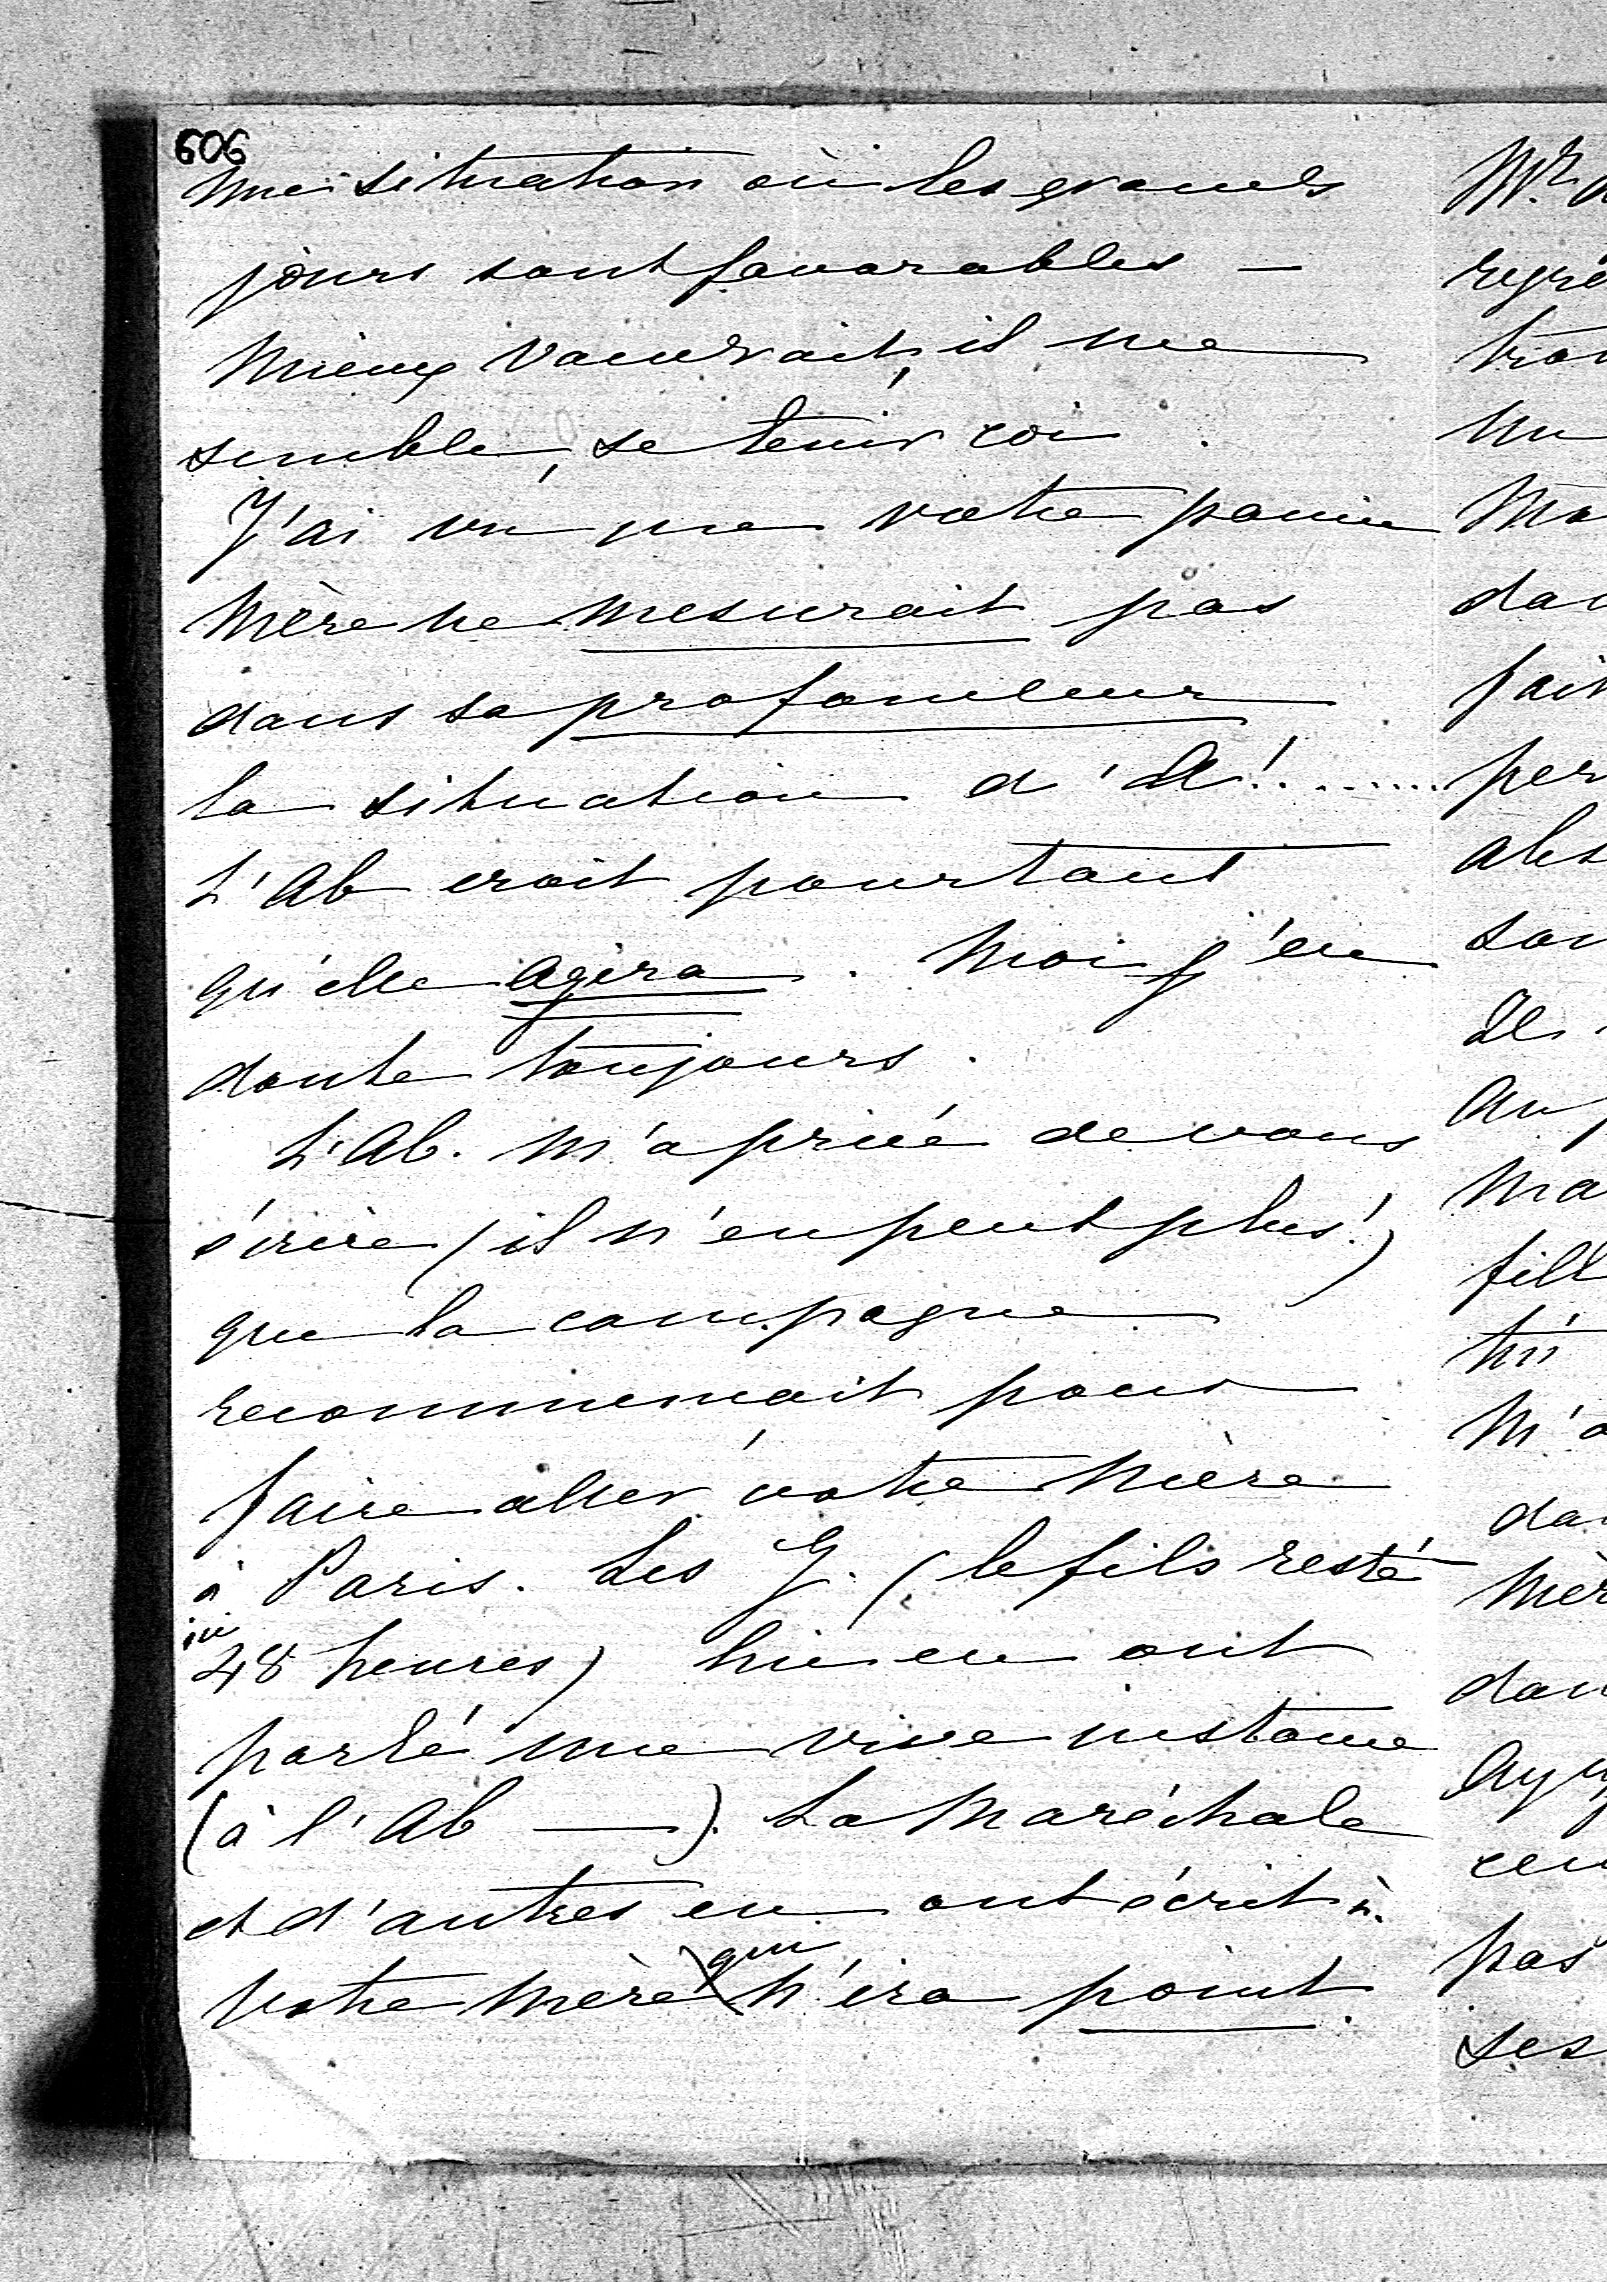 606
une situation où les grands
jours sont favorables —
Mieux vaudrait, il me
semble, se tenir coi.
J'ai vu que votre pauvre
Mère ne mesurait pas
dans sa profondeur
la situation d'A!........
L'Ab croit pourtant
qu'elle agira. Moi j'en
doute toujours.
L'Ab. m'a priée de vous
écrire (il n'en peut plus!)
que la campagne
recommençait pour
faire aller votre Mère
à Paris. Les G. (le fils resté
ici
48 heures) lui en ont
porté une vive instance
(à l'Ab —). La Maréchale
et d'autres en ont écrit à
qui
votre Mère n'ira point.
Mr.
dan
fait
per
abs
son
M'a
dan
Mèr
dan
pas
ses